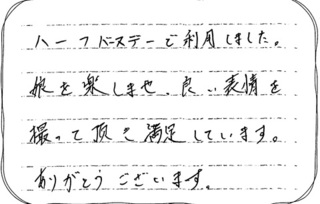 ハーフバースデーで利用しました。
娘を楽しませ、良い表情を
撮って頂き満足しています。
ありがとうございます。